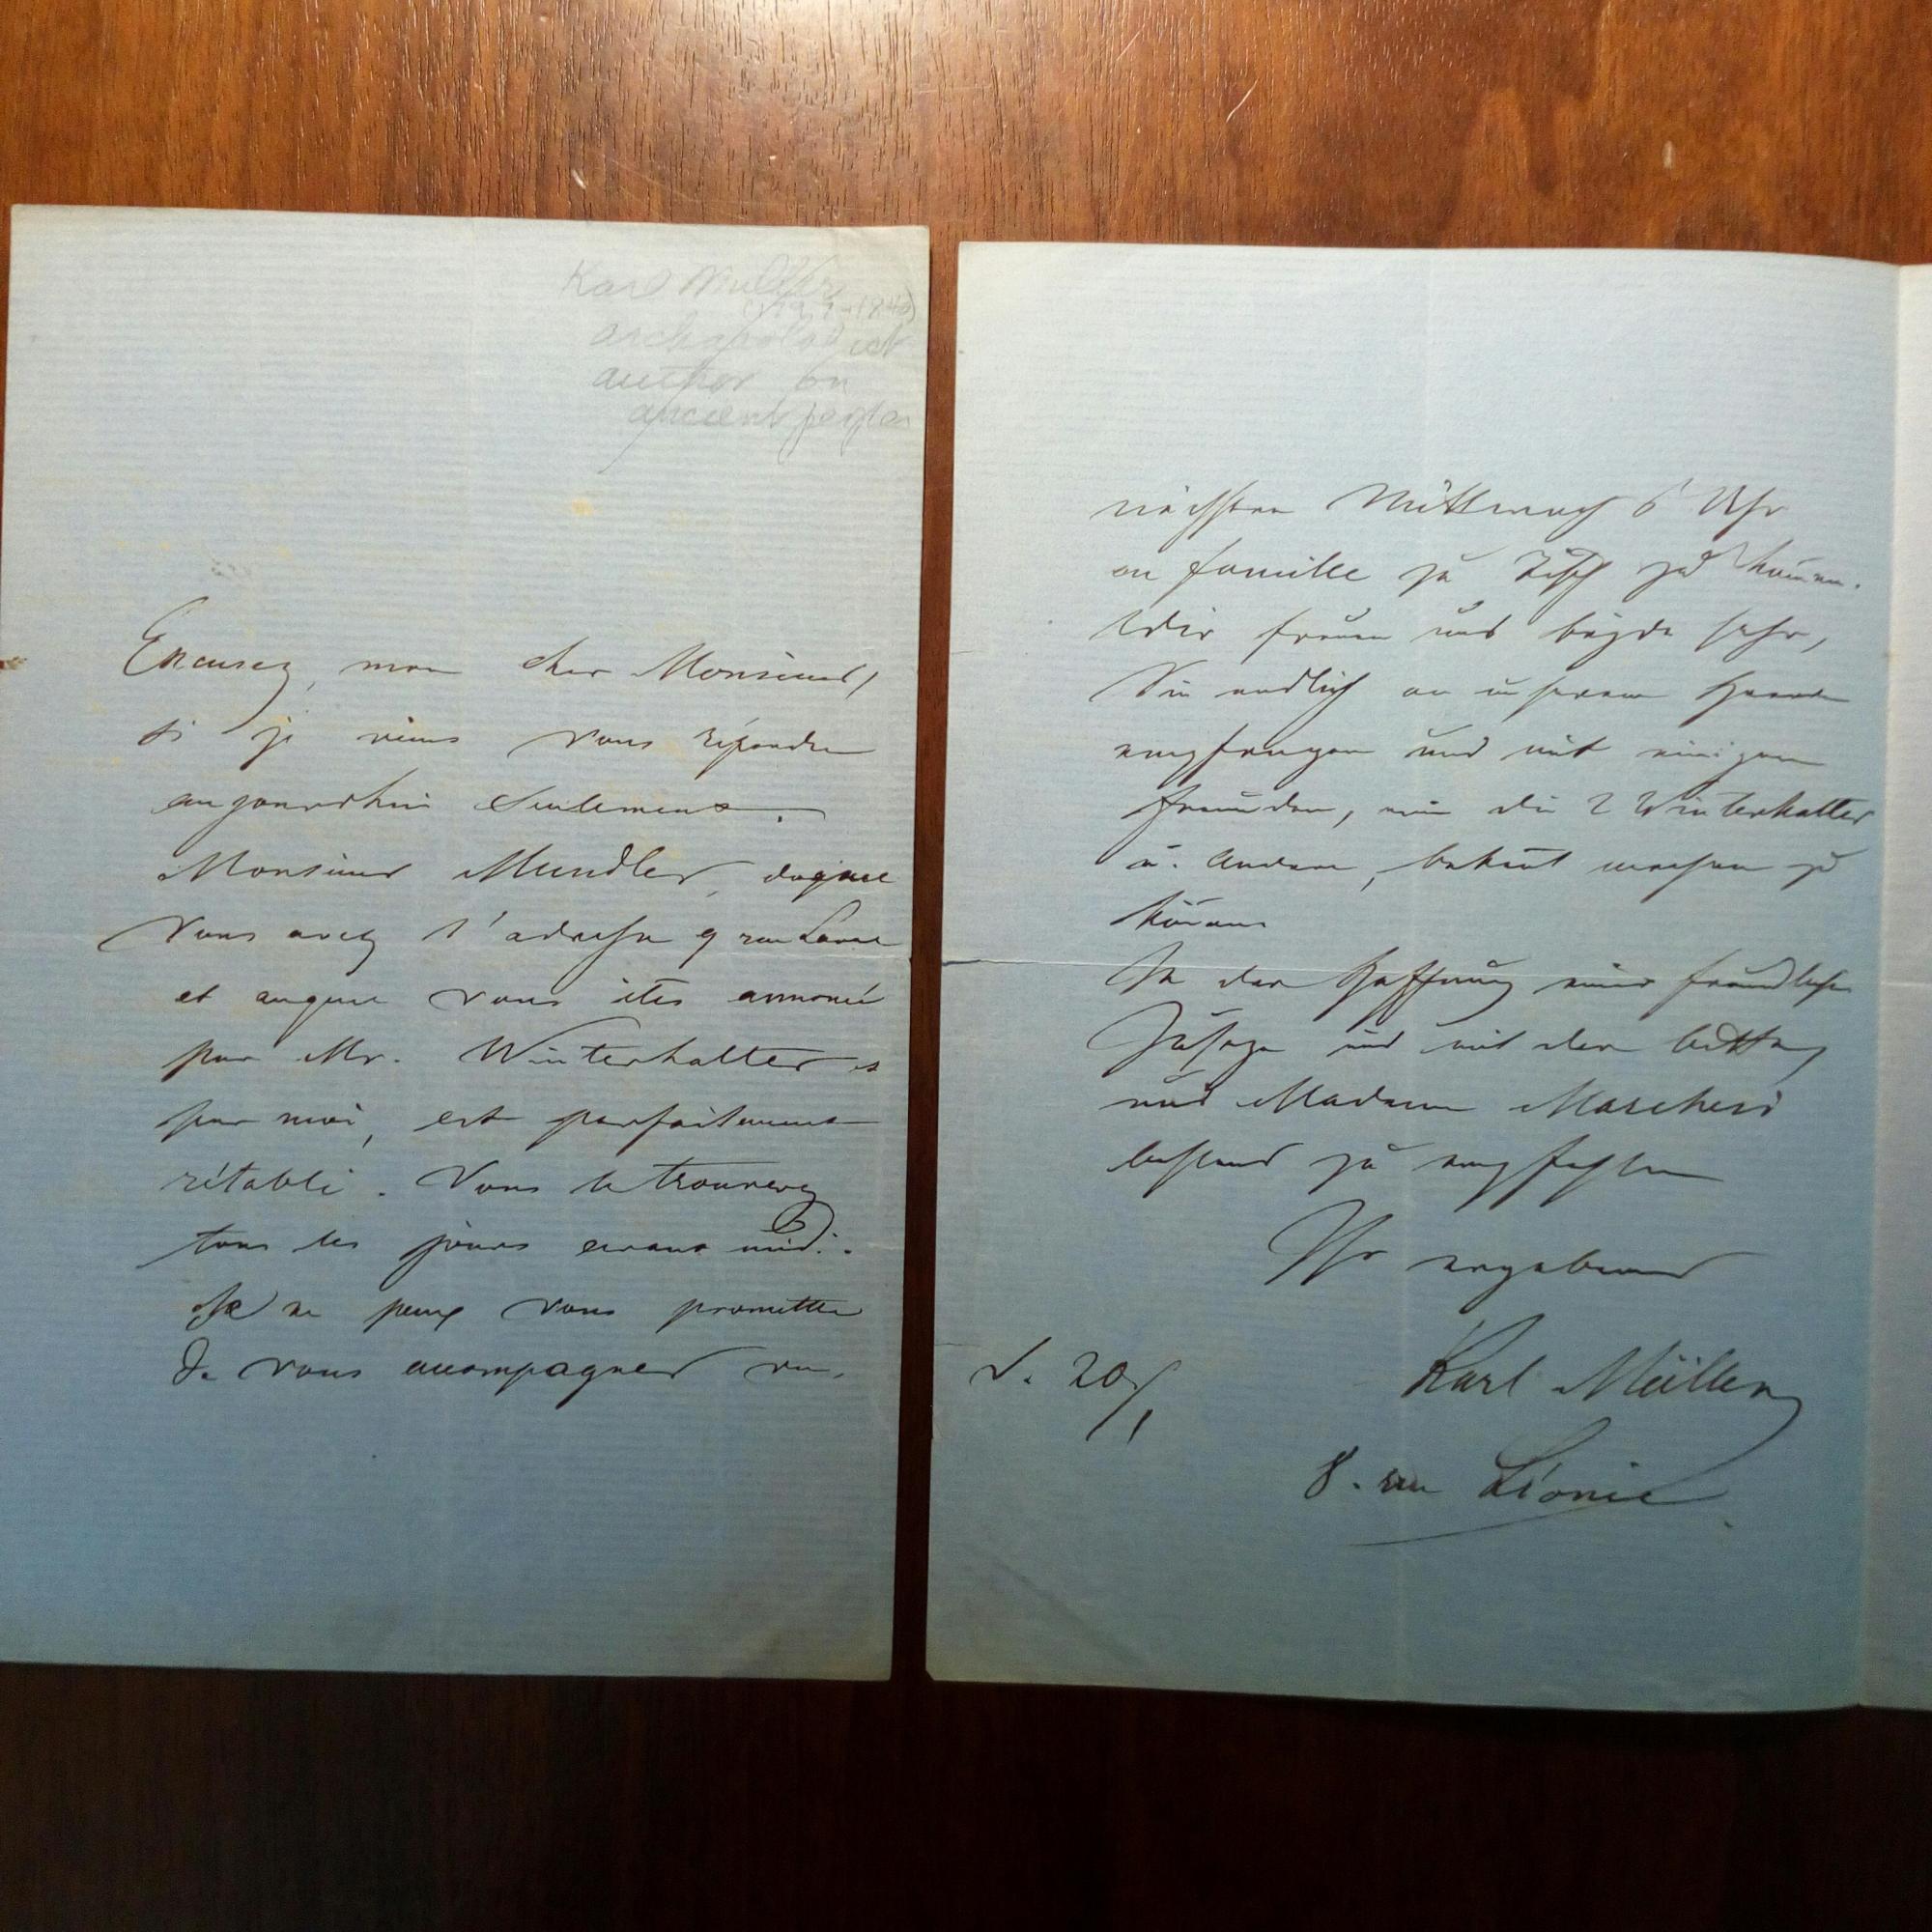 Karl Müller
archäolog ist
author on
ancient
Excusez, mon cher Monsieur,
si je viens vous répondre
aujourdhui seulement.
Monsieur Mundler, doquel
vous avez l'adresse 9 rue Laval
et auquel vous êtes annoncé
par Mr. Winterhalter et
par moi, est parfaitement
rétabli. Vous le trouverez
tous les jours avant midi.
Je ne peux vous promettre
de vous accompagner
nächsten Mittwoch 6 Uhr
en famille zu Tisch zu kommen.
Wir freuen uns beyde sehr,
Sie endlich an unserem Heerde
empfangen und mit einigen
Freunden, wie die 2 Winterhalter
u. Andere, bekannt machen zu
können
In der Hoffnung einer freundlichen
Zusage und mit der Bitte
uns Madame Marchesi
bestens zu empfehlen
Ihr ergebener
d. 20/1
Karl Müller
8. rue Léonie